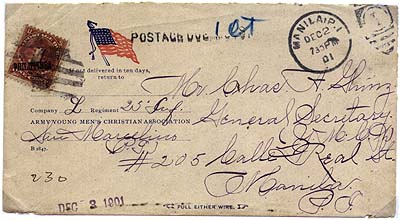 POSTAGE DUE
1 ct
MANILA, P.I.
DEC 2
7:30 PM
01
If not delivered in ten days,
return to
Mr. Chas. A.
Company L Regiment
ARMY YOUNG MEN'S CHRISTIAN ASSOCIATION
General Secretary
San Marcelino
P.I.
Y.M.C.A.
B 1847.
#205 Calle Real St
230
Manila
P.I.
DEC 3 1901
PULL EITHER WIRE.